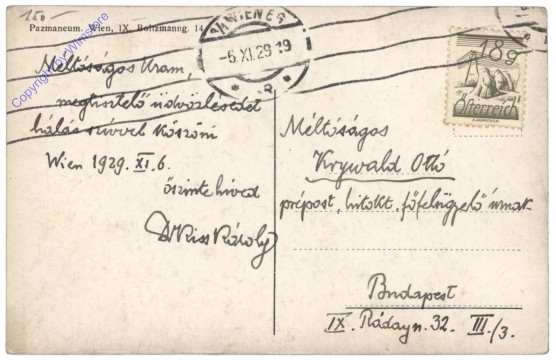 250
Pazmaneum. Wien, IX. Boltzmanng. 14
Copyright by Wimstore
WIEN
-6.XI.29 19
18g
Österreich
Méltóságos Uram,
megtisztelő üdvözlésedet
hálás szívvel köszöni
Wien 1929. XI. 6.
őszinte híved
Dr Kiss Károly
Méltóságos
Krywald Ottó
prépost, hitokt. főfelügyelő úrnak
Budapest
IX. Ráday u. 32. III./3.